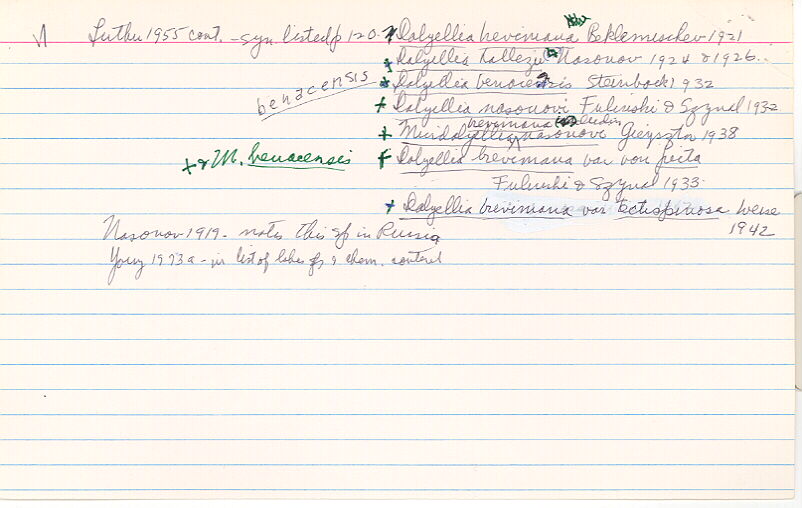 Luther 1955 cont. - syn. listed p 120 - Dalyellia brevimana Beklemischev 1921
+ Dalyellia Nasonov 1924 & 1926.
benacensis
Dalyellia Steinbock 1932
+ Dalyellia nasonovi Fulinski & Szynal 1932
brevimana
+ nasonovi Gieysztor 1938
+ & M. benacensis
+ Dalyellia brevimana var
Fulinski & Szynal 1933
+ Dalyellia brevimana var Weise
1942
Nasonov 1919 - notes this sp in Russia
Young 1973a - in list of & chem. control